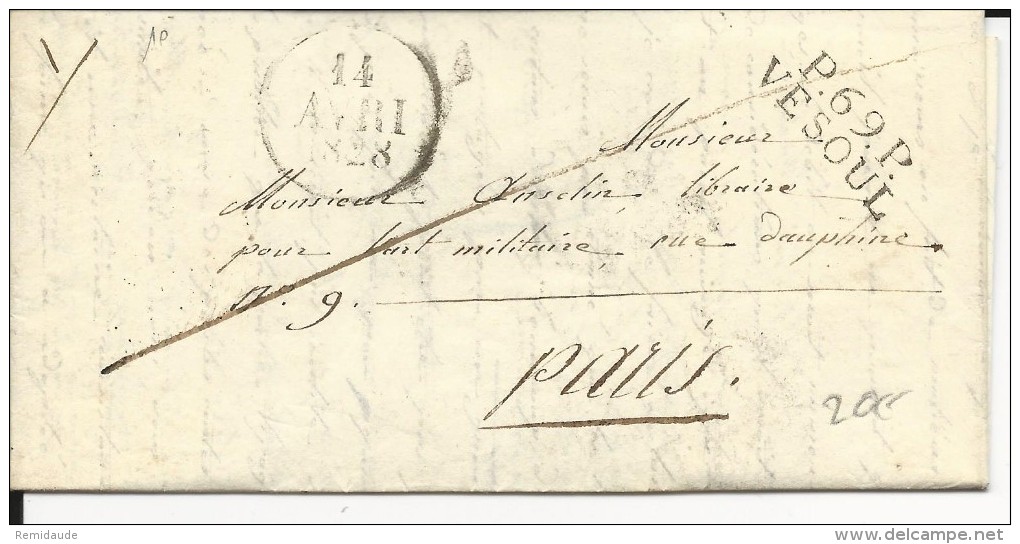 14
AVRIL
1828
P.69.P.
VESOUL
Monsieur
Monsieur Anselin libraire
pour l'art militaire rue dauphine
N° 9.
paris.
20€
Remidaude
www.delcampe.net